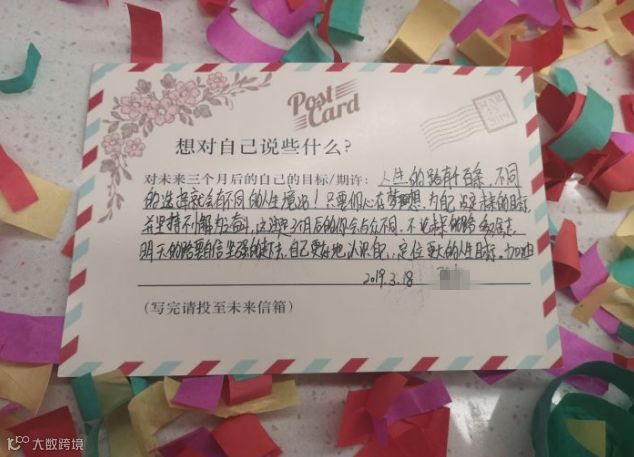 Post
Card
想对自己说些什么?
对未来三个月后的自己的目标/期许: 人生的路有千百条,不同
的选择就会有不同的人生境遇!只要你心有梦想,为自己定下目标
并坚持不懈
三个月后的你会与众不同。
明天的路要自信坚强的走下去,自己更好地认识自己,定位更大的人生目标。加油
2019.3.18
(写完请投至未来信箱)
大数跨境